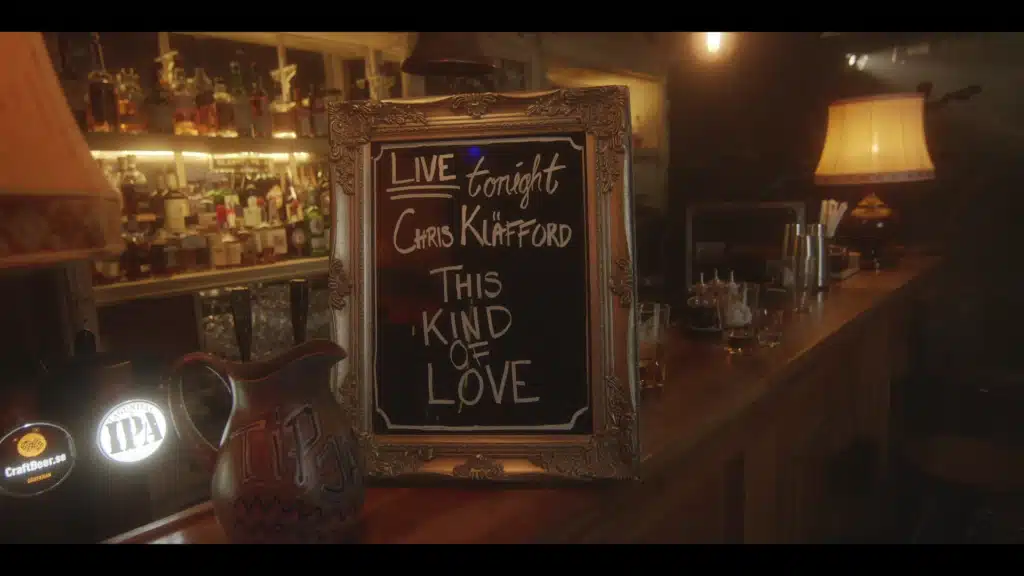 LIVE tonight
CHRIS KLÄFFORD
THIS
KIND
OF
LOVE
IPA
CraftBeer.se
TiPs